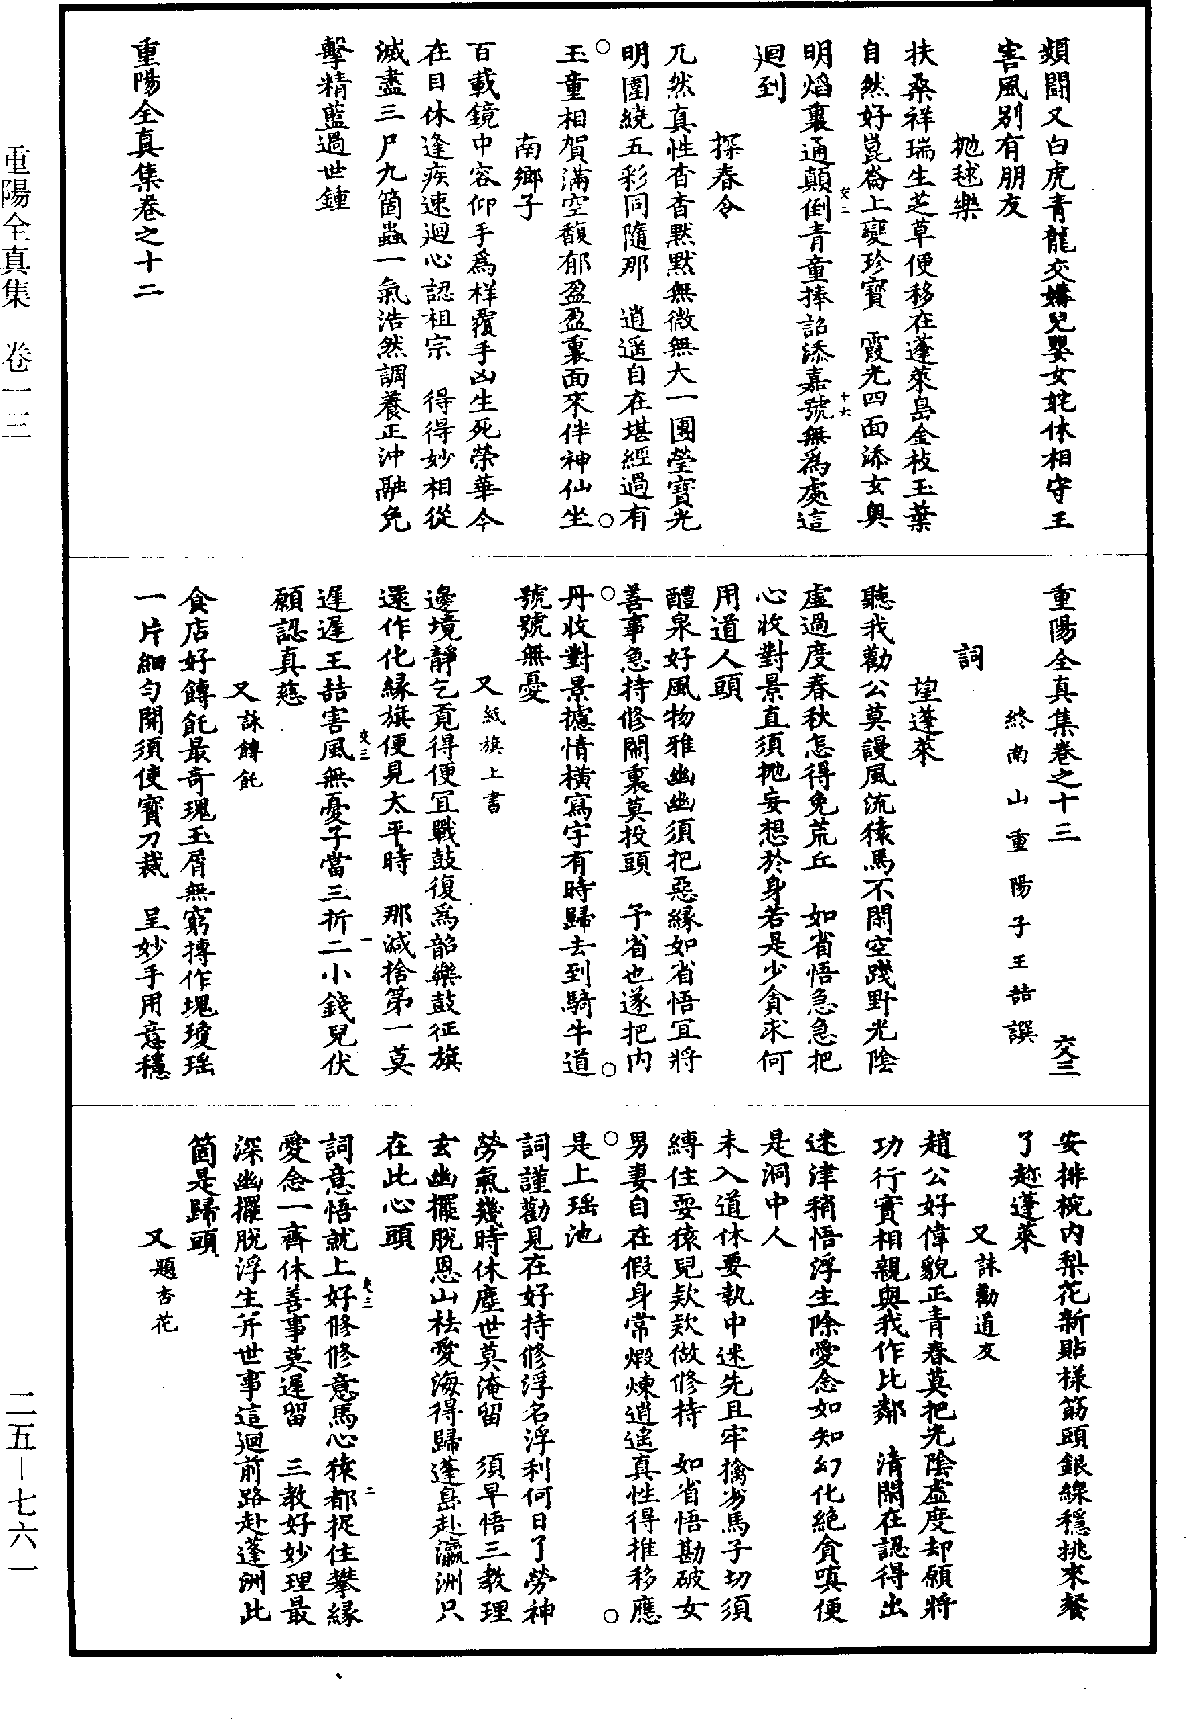 頻鬪又白虎青龍交媾兒嬰女姹休相守王
害風別有朋友
抛毬樂
扶桑祥瑞生芝草便移在蓬萊島金枝玉葉
自然好崑崙上變珍寶　霞光四面添玄奧
明焰裏通顛倒青童捧詔添嘉號無爲處這
廻到
探春令
兀然真性杳杳默默無微無大一團瑩寶光
明圍繞五彩同隨那　逍遥自在堪經過有
玉童相賀滿空馥郁盈盈裏面來伴神仙坐
南鄉子
百載鏡中容仰手爲様覆手凶生死榮華今
在目休逢疾速廻心認祖宗　得得妙相從
滅盡三尸九箇蟲一氣浩然調養正沖融免
擊精藍過世鍾
重陽全真集卷之十二
交二
十六
重陽全真集卷之十三
交三
終南山重陽子王嚞譔
詞
望蓬萊
聽我勸公莫謾風流猿馬不閑空踐野光陰
虛過度春秋怎得免荒丘　如省悟急急把
心收對景直須抛妄想於身若是少貪求何
用道人頭
醴泉好風物雅幽幽須把惡緣如省悟宜將
善事急持修鬧裏莫投頭　予省也遂把内
丹收對景攄情橫寫字有時歸去到騎牛道
號號無憂
又紙旗上書
邊境靜乞覓得便宜戰鼓復爲韶樂鼓征旗
還作化緣旗便見太平時　那减捨第一莫
遲遲王嚞害風無憂子當三折二小錢兒伏
願認真慈
交三
一
又詠餺飥
食店好餺飥最奇瑰玉屑無窮摶作塊瓊瑶
一片細勻開須使寶刀裁　呈妙手用意穩
安排椀内梨花新貼様筯頭銀線穩挑來餐
了赴蓬萊
又詠勸道友
趙公好偉貌正青春莫把光陰虛度却願將
功行實相親與我作比鄰　清閑在認得出
迷津稍悟浮生除愛念如知幻化絶貪嗔便
是洞中人
未入道休要執中迷先且牢擒劣馬子切須
縛住耍猿兒欵欵做修持　如省悟勘破女
男妻自在假身常煆煉逍遥真性得推移應
是上瑶池
詞謹勸見在好持修浮名浮利何日了勞神
勞氣幾時休塵世莫淹留　須早悟三教理
玄幽擺脫恩山枯愛海得歸蓬島赴瀛洲只
在此心頭
詞意悟就上好修修意馬心猿都捉住攀緣
愛念一齊休善事莫遲留　三教好妙理最
深幽擺脫浮生并世事這廻前路赴蓬洲此
箇是歸頭
交三
二
又題杏花
重陽全真集　卷一三
二五－七六一